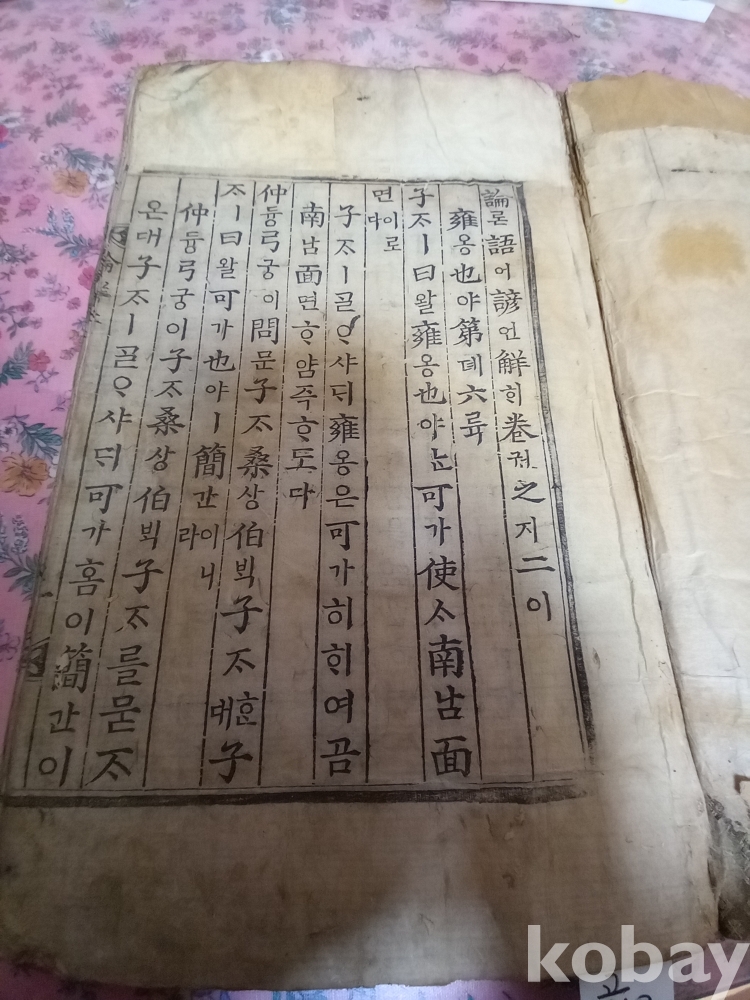 論론語어諺언解ᄒᆡ卷권之지二이
雍옹也야第뎨六륙
子ᄌᆞㅣ曰왈雍옹也야ᄂᆞᆫ可가使ᄉᆞ南남面
면이로다
子ᄌᆞㅣᄀᆞᆯᄋᆞ샤ᄃᆡ雍옹은可가히ᄒᆡ여곰
南남面면ᄒᆞ암즉ᄒᆞ도다
仲듕弓궁이問문子ᄌᆞ桑상伯ᄇᆡᆨ子ᄌᆞᄒᆞᆫ대子
ᄌᆞㅣ曰왈可가也야ㅣ簡간이니라
仲듕弓궁이子ᄌᆞ桑상伯ᄇᆡᆨ子ᄌᆞ를묻ᄌᆞ
온대子ᄌᆞㅣᄀᆞᆯᄋᆞ샤ᄃᆡ可가홈이簡간이
kobay